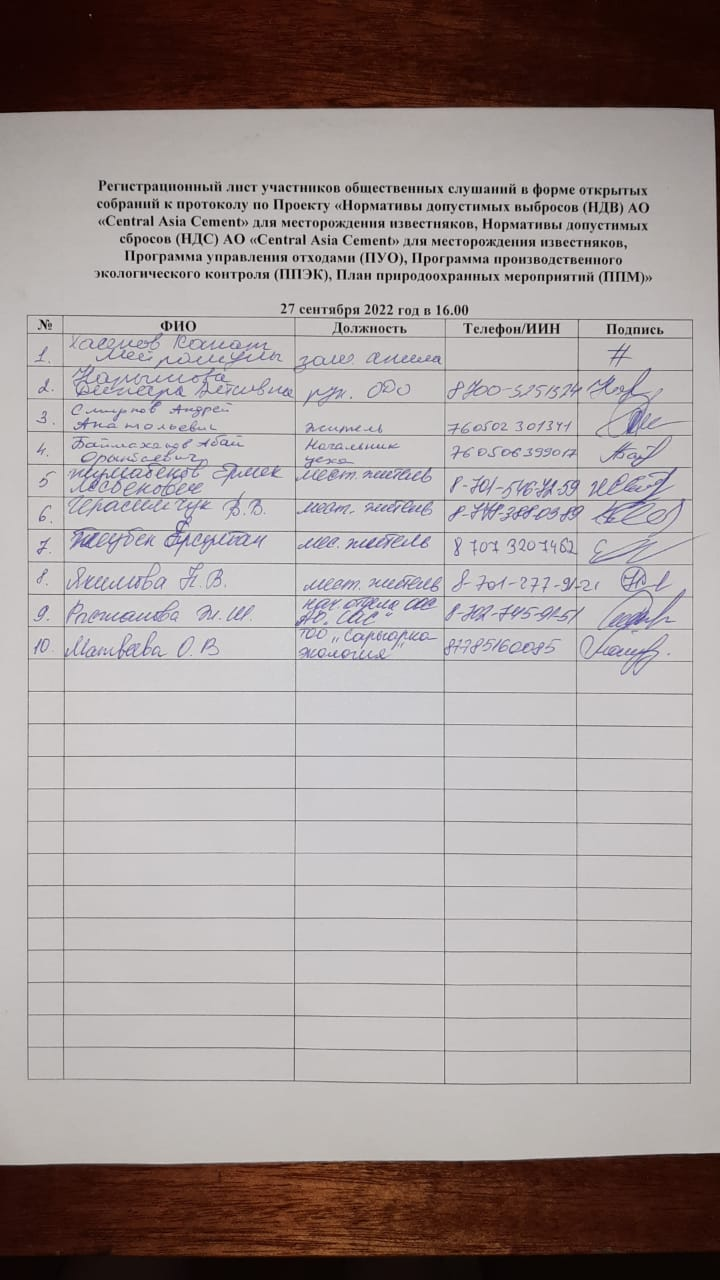 Регистрационный лист участников общественных слушаний в форме открытых
собраний к протоколу по Проекту «Нормативы допустимых выбросов (НДВ) АО
«Central Asia Cement» для месторождения известняков, Нормативы допустимых
сбросов (НДС) АО «Central Asia Cement» для месторождения известняков,
Программа управления отходами (ПУО), Программа производственного
экологического контроля (ППЭК), План природоохранных мероприятий (ППМ)»
27 сентября 2022 год в 16.00
№ ФИО Должность Телефон/ИИН Подпись
1. Хасенов Канат
зам. акима
2. Нарымова
рук. ОДО 8700-5251524
3. Смирнов Андрей
Анатольевич житель 760502301341
4. Баймаханов Абай Начальник
Орынбаевич цеха 760506399017
5 Жумабеков Ермек мест. житель
8-701-546-72-59
6. Герасимчук В.В. мест. житель
7. мес. житель 8 707 3207462
8. Якимова Н.В. мест. житель 8-701-277-91-21
9. Рустамова Ж.Ш. нач отдела
АО "САС" 8-702-745-91-51
10. Матвеева О.В ТОО "Сарыарка
экология" 87785160085